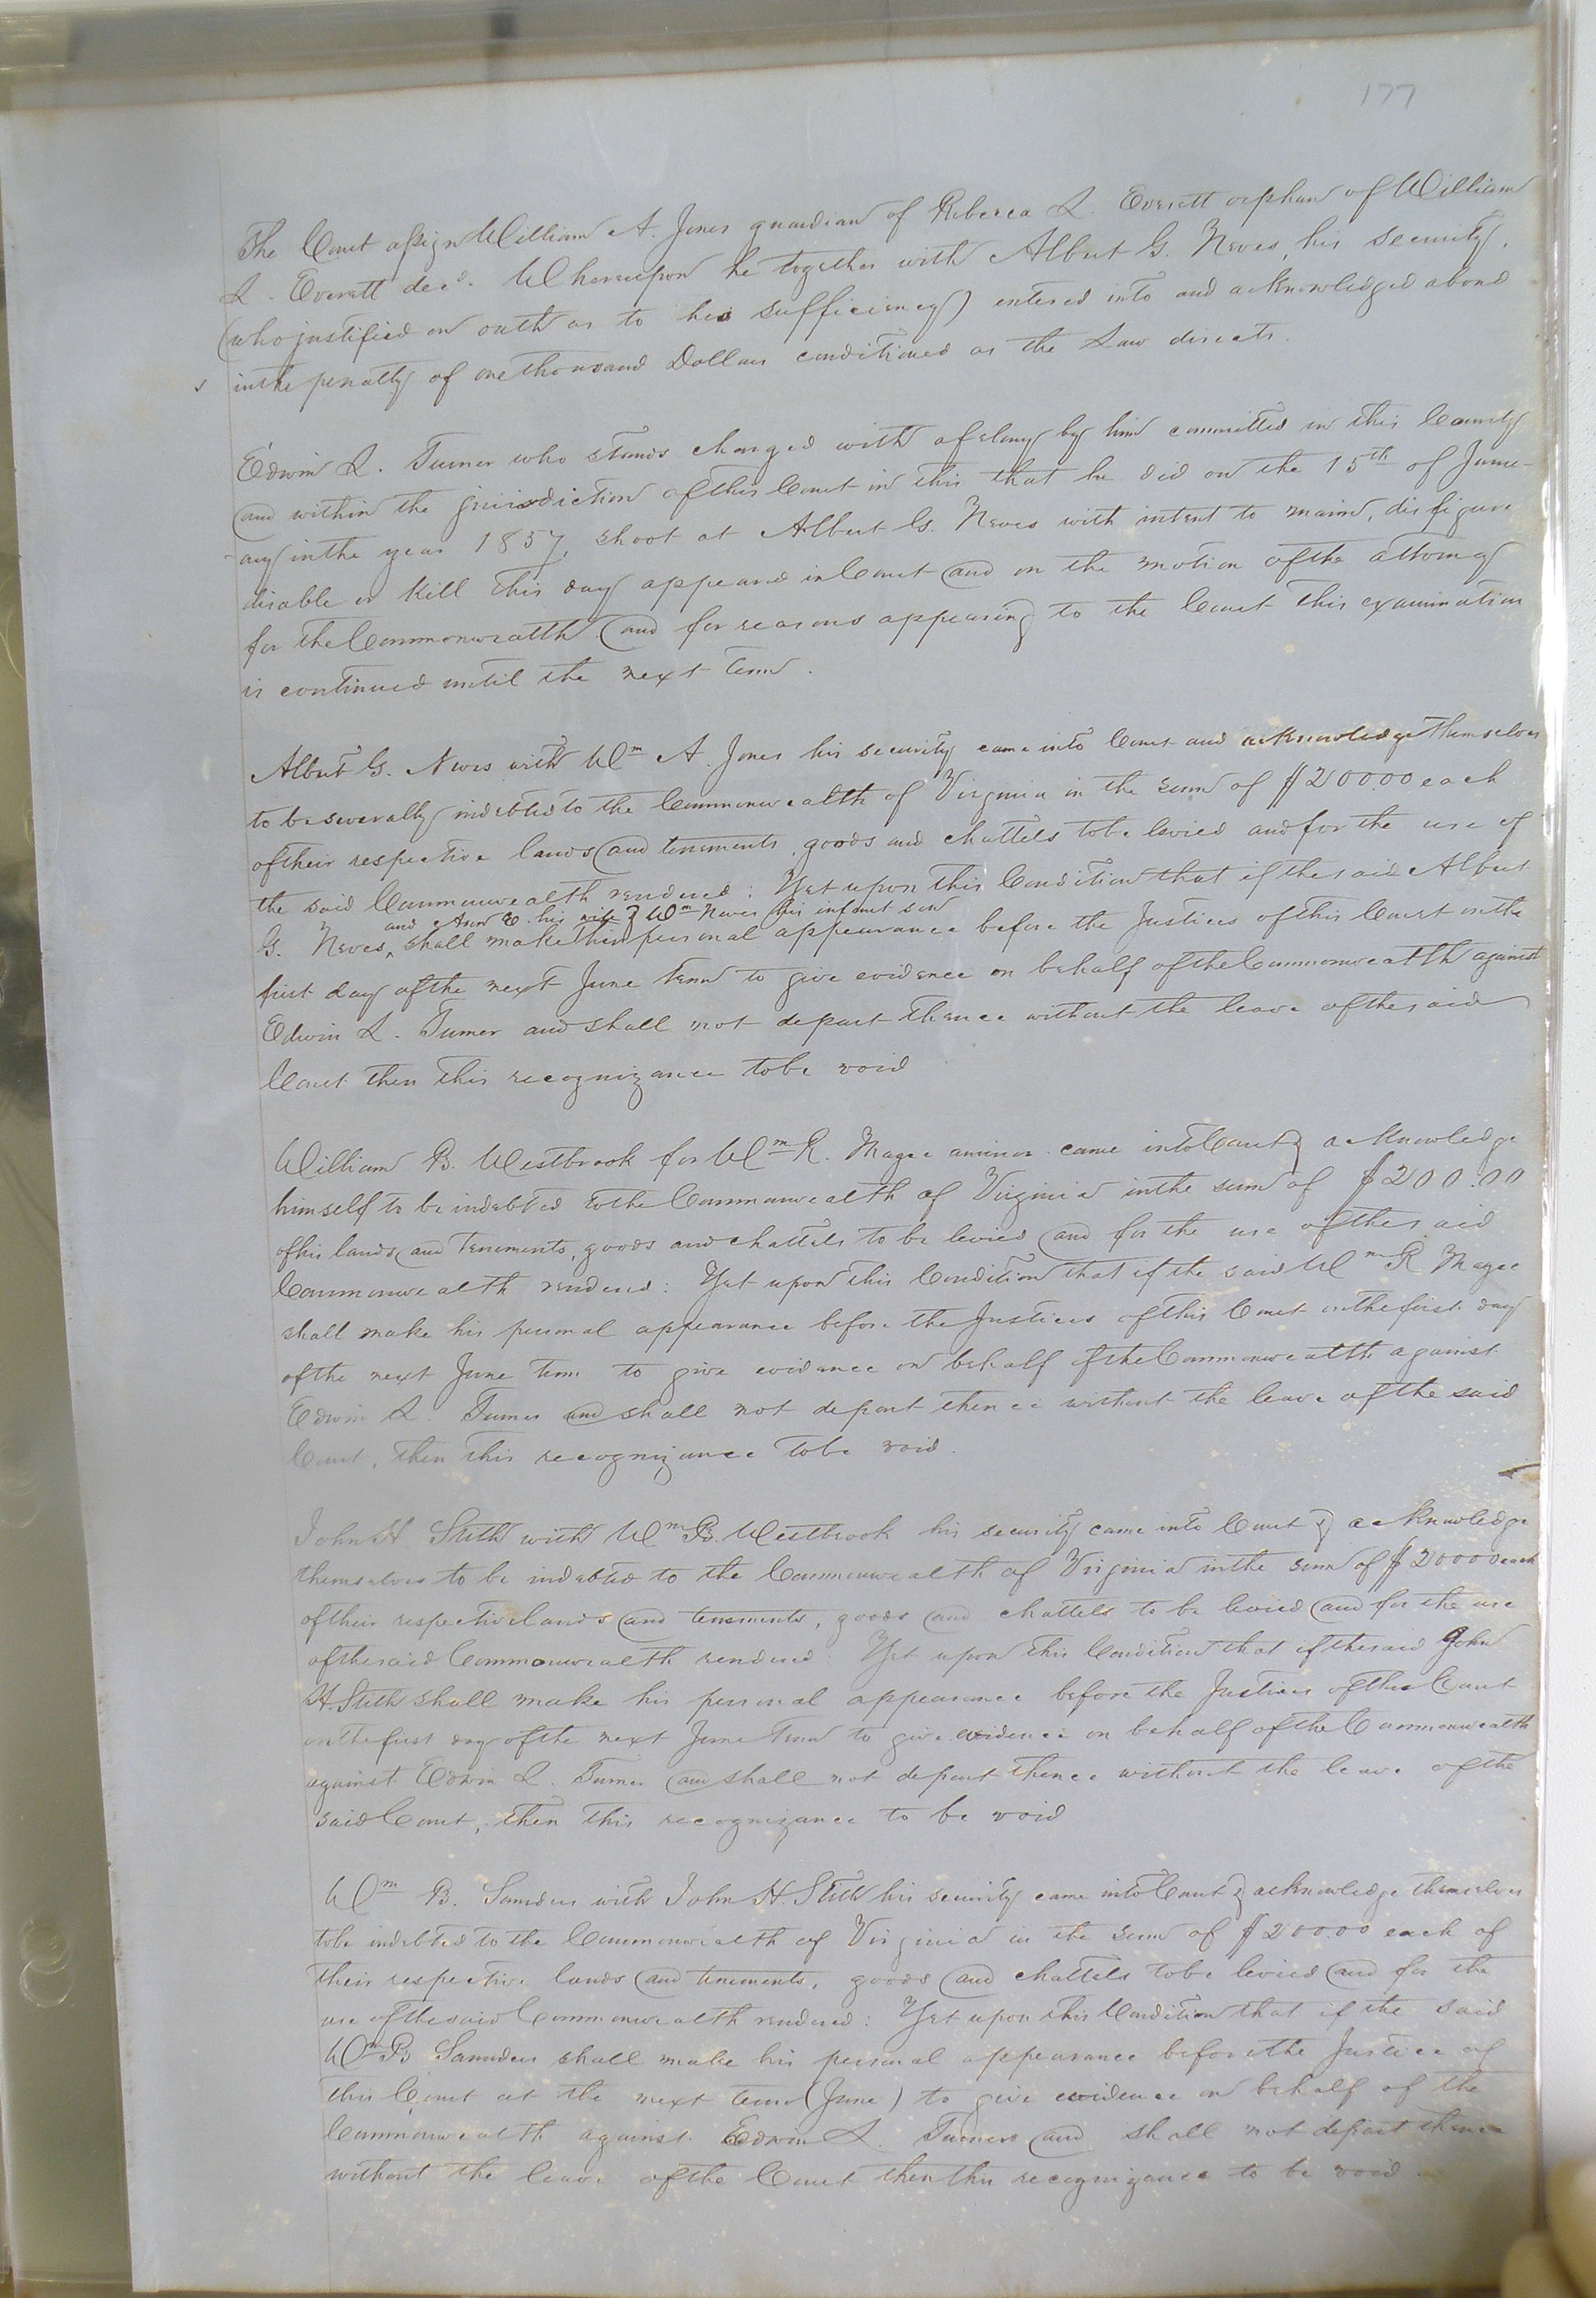 177
The Court assign William A. Jones guardian of Rebecca L. Everett orphan of William
L. Everett decd. Whereupon he together with Albert G. Neves, his security,
(who justified on oath as to his sufficiency) entered into and acknowledged a bond
in the penalty of one thousand Dollars conditioned as the Law directs.
Edwin L. Turner who stands charged with a felony by him committed in this County
and within the jurisdiction of this Court in this that he did on the 15th of Janu-
-ary in the year 1857, shoot at Albert G. Neves with intent to maim, disfigure
disable or kill this day appeared in Court and on the motion of the attorney
for the Commonwealth and for reasons appearing to the Court this examination
is continued until the next term.
Albert G. Neves with Wm A. Jones his security came into Court and acknowledge themselves
to be severally indebted to the Commonwealth of Virginia in the sum of $200.00 each
of their respective lands and tenements, goods and chattels to be levied and for the use of
the said Commonwealth rendered: Yet upon this Condition that if the said Albert
and Ann E. his wife & Wm Neves his infant son
G. Neves, shall make their personal appearance before the Justices of this Court on the
first day of the next June term to give evidence on behalf of the Commonwealth against
Edwin L. Turner and shall not depart thence without the leave of the said
Court then this recognizance to be void
William B. Westbrook for Wm R. Magee a minor came into Court & acknowledge
himself to be indebted to the Commonwealth of Virginia in the sum of $200.00
of his lands and tenements, goods and chattels to be levied and for the use of the said
Commonwealth rendered: Yet upon this Condition that if the said Wm R Magee
shall make his personal appearance before the Justices of this Court on the first day
of the next June term to give evidence on behalf of the Commonwealth against
Edwin L. Turner and shall not depart thence without the leave of the said
Court, then this recognizance to be void.
John H. Stith with Wm B. Westbrook his security came into Court & acknowledge
themselves to be indebted to the Commonwealth of Virginia in the sum of $200.00 each
of their respective lands and tenements, goods and chattels to be levied and for the use
of the said Commonwealth rendered: Yet upon this Condition that if the said John
H. Stith shall make his personal appearance before the Justices of this Court
on the first day of the next June term to give evidence on behalf of the Commonwealth
against Edwin L. Turner and shall not depart thence without the leave of the
said Court, then this recognizance to be void
Wm B. Saunders with John H. Stith his security came into Court & acknowledge themselves
to be indebted to the Commonwealth of Virginia in the sum of $200.00 each of
their respective lands and tenements, goods and chattels to be levied and for the
use of the said Commonwealth rendered: Yet upon this Condition that if the said
Wm B Saunders shall make his personal appearance before the Justice of
this Court at the next term (June) to give evidence on behalf of the
Commonwealth against Edwin L. Turner and shall not depart thence
without the leave of the Court then this recognizance to be void.